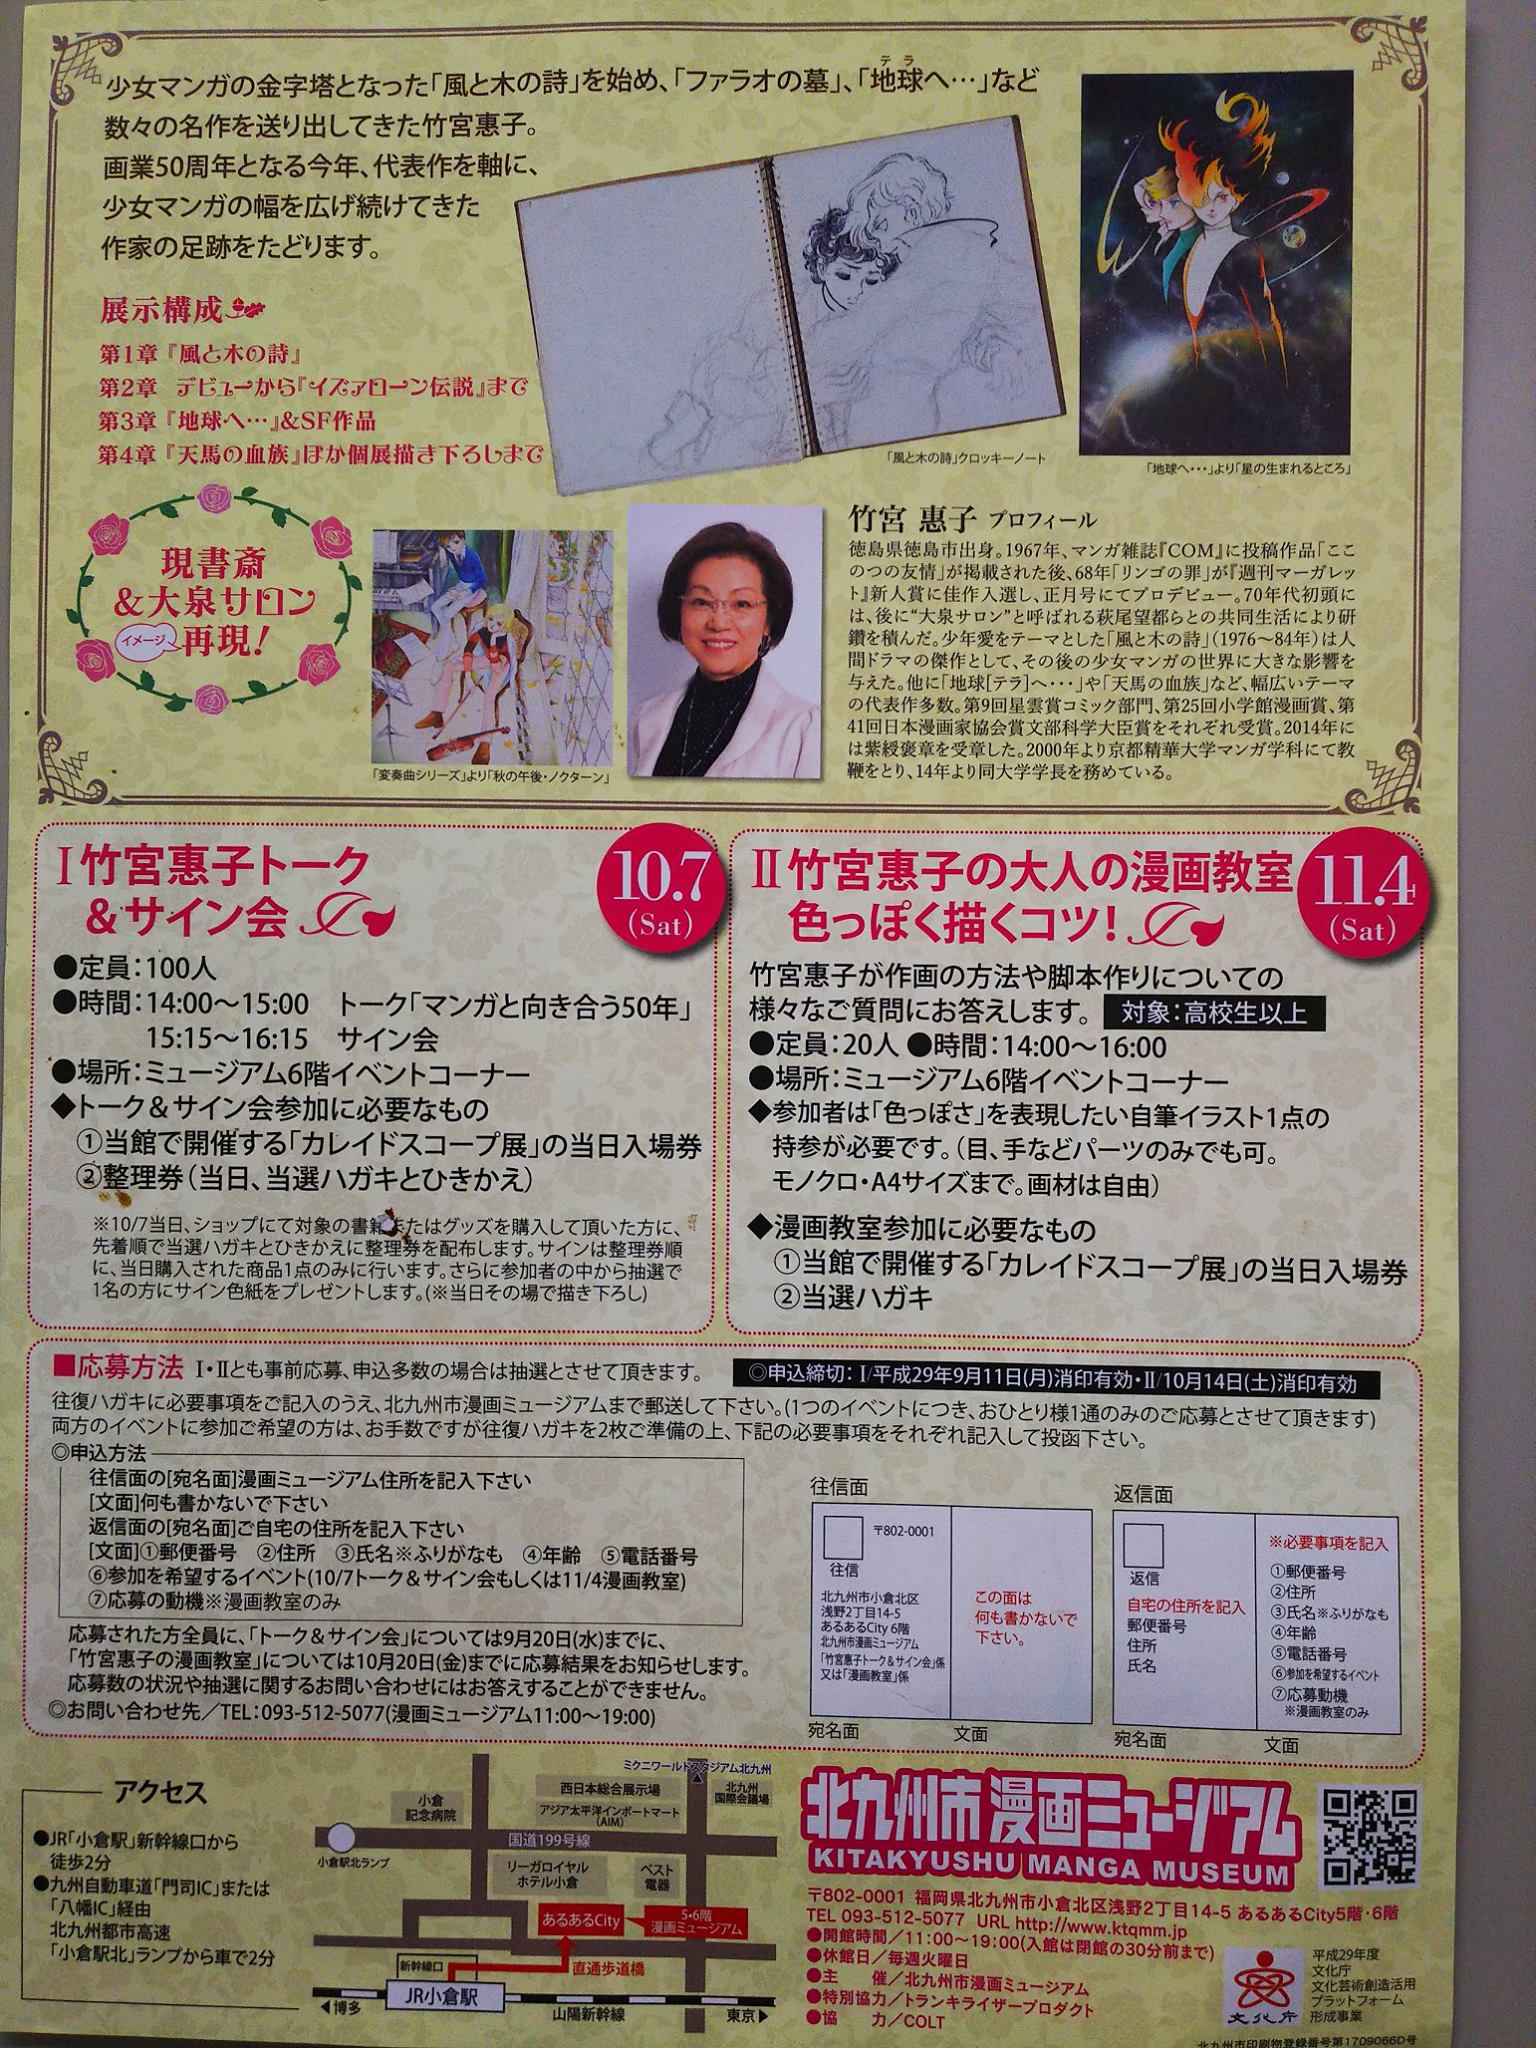 少女マンガの金字塔となった「風と木の詩」を始め、「ファラオの墓」、「地球へ…」など
テラ
数々の名作を送り出してきた竹宮惠子。
画業50周年となる今年、代表作を軸に、
少女マンガの幅を広げ続けてきた
作家の足跡をたどります。
展示構成
第1章『風と木の詩』
第2章 デビューから『イズァローン伝説』まで
第3章『地球へ…』&SF作品
第4章『天馬の血族』ほか個展描き下ろしまで
「風と木の詩」クロッキーノート
「地球へ・・・」より「星の生まれるところ」
現書斎
&大泉サロン
イメージ 再現!
「変奏曲シリーズ」より「秋の午後・ノクターン」
竹宮 惠子 プロフィール
徳島県徳島市出身。1967年、マンガ雑誌『COM』に投稿作品「ここ
のつの友情」が掲載された後、68年「リンゴの罪」が『週刊マーガレッ
ト』新人賞に佳作入選し、正月号にてプロデビュー。70年代初頭に
は、後に"大泉サロン"と呼ばれる萩尾望都らとの共同生活により研
鑽を積んだ。少年愛をテーマとした「風と木の詩」(1976〜84年)は人
間ドラマの傑作として、その後の少女マンガの世界に大きな影響を
与えた。他に「地球[テラ]へ・・・」や「天馬の血族」など、幅広いテーマ
の代表作多数。第9回星雲賞コミック部門、第25回小学館漫画賞、第
41回日本漫画家協会賞文部科学大臣賞をそれぞれ受賞。2014年に
は紫綬褒章を受章した。2000年より京都精華大学マンガ学科にて教
鞭をとり、14年より同大学学長を務めている。
Ⅰ竹宮惠子トーク
&サイン会
10.7
(Sat)
●定員:100人
●時間:14:00〜15:00 トーク「マンガと向き合う50年」
15:15〜16:15 サイン会
●場所:ミュージアム6階イベントコーナー
◆トーク&サイン会参加に必要なもの
①当館で開催する「カレイドスコープ展」の当日入場券
②整理券(当日、当選ハガキとひきかえ)
※10/7当日、ショップにて対象の書籍またはグッズを購入して頂いた方に、
先着順で当選ハガキとひきかえに整理券を配布します。サインは整理券順
に、当日購入された商品1点のみに行います。さらに参加者の中から抽選で
1名の方にサイン色紙をプレゼントします。(※当日その場で描き下ろし)
Ⅱ竹宮惠子の大人の漫画教室
色っぽく描くコツ!
11.4
(Sat)
竹宮惠子が作画の方法や脚本作りについての
様々なご質問にお答えします。 対象:高校生以上
●定員:20人 ●時間:14:00〜16:00
●場所:ミュージアム6階イベントコーナー
◆参加者は「色っぽさ」を表現したい自筆イラスト1点の
持参が必要です。(目、手などパーツのみでも可。
モノクロ・A4サイズまで。画材は自由)
◆漫画教室参加に必要なもの
①当館で開催する「カレイドスコープ展」の当日入場券
②当選ハガキ
■応募方法 Ⅰ・Ⅱとも事前応募、申込多数の場合は抽選とさせて頂きます。 ◎申込締切:Ⅰ/平成29年9月11日(月)消印有効・Ⅱ/10月14日(土)消印有効
往復ハガキに必要事項をご記入のうえ、北九州市漫画ミュージアムまで郵送して下さい。(1つのイベントにつき、おひとり様1通のみのご応募とさせて頂きます)
両方のイベントに参加ご希望の方は、お手数ですが往復ハガキを2枚ご準備の上、下記の必要事項をそれぞれ記入して投函下さい。
◎申込方法
往信面の[宛名面]漫画ミュージアム住所を記入下さい
[文面]何も書かないで下さい
返信面の[宛名面]ご自宅の住所を記入下さい
[文面]①郵便番号 ②住所 ③氏名※ふりがなも ④年齢 ⑤電話番号
⑥参加を希望するイベント(10/7トーク&サイン会もしくは11/4漫画教室)
⑦応募の動機※漫画教室のみ
応募された方全員に、「トーク&サイン会」については9月20日(水)までに、
「竹宮惠子の漫画教室」については10月20日(金)までに応募結果をお知らせします。
応募数の状況や抽選に関するお問い合わせにはお答えすることができません。
◎お問い合わせ先/TEL:093-512-5077(漫画ミュージアム11:00〜19:00)
往信面
〒802-0001
往信
北九州市小倉北区
浅野2丁目14-5
あるあるCity 6階
北九州市漫画ミュージアム
「竹宮惠子トーク&サイン会」係
又は「漫画教室」係
この面は
何も書かないで
下さい。
宛名面 文面
返信面
返信
自宅の住所を記入
郵便番号
住所
氏名
※必要事項を記入
①郵便番号
②住所
③氏名※ふりがなも
④年齢
⑤電話番号
⑥参加を希望するイベント
⑦応募動機
※漫画教室のみ
宛名面 文面
アクセス
●JR「小倉駅」新幹線口から
徒歩2分
●九州自動車道「門司IC」または
「八幡IC」経由
北九州都市高速
「小倉駅北」ランプから車で2分
ミクニワールドスタジアム北九州
小倉
記念病院
西日本総合展示場
アジア太平洋インポートマート
(AIM)
北九州
国際会議場
国道199号線
小倉駅北ランプ
リーガロイヤル
ホテル小倉
ベスト
電器
あるあるCity
5・6階
漫画ミュージアム
新幹線口
直通歩道橋
JR小倉駅
◀博多
山陽新幹線
東京▶
北九州市漫画ミュージアム
KITAKYUSHU MANGA MUSEUM
〒802-0001 福岡県北九州市小倉北区浅野2丁目14-5 あるあるCity5階・6階
TEL 093-512-5077 URL http://www.ktqmm.jp
●開館時間/11:00〜19:00(入館は閉館の30分前まで)
●休館日/毎週火曜日
●主 催/北九州市漫画ミュージアム
●特別協力/トランキライザープロダクト
●協 力/COLT
文化庁
平成29年度
文化庁
文化芸術創造活用
プラットフォーム
形成事業
北九州市印刷物登録番号第1709066D号